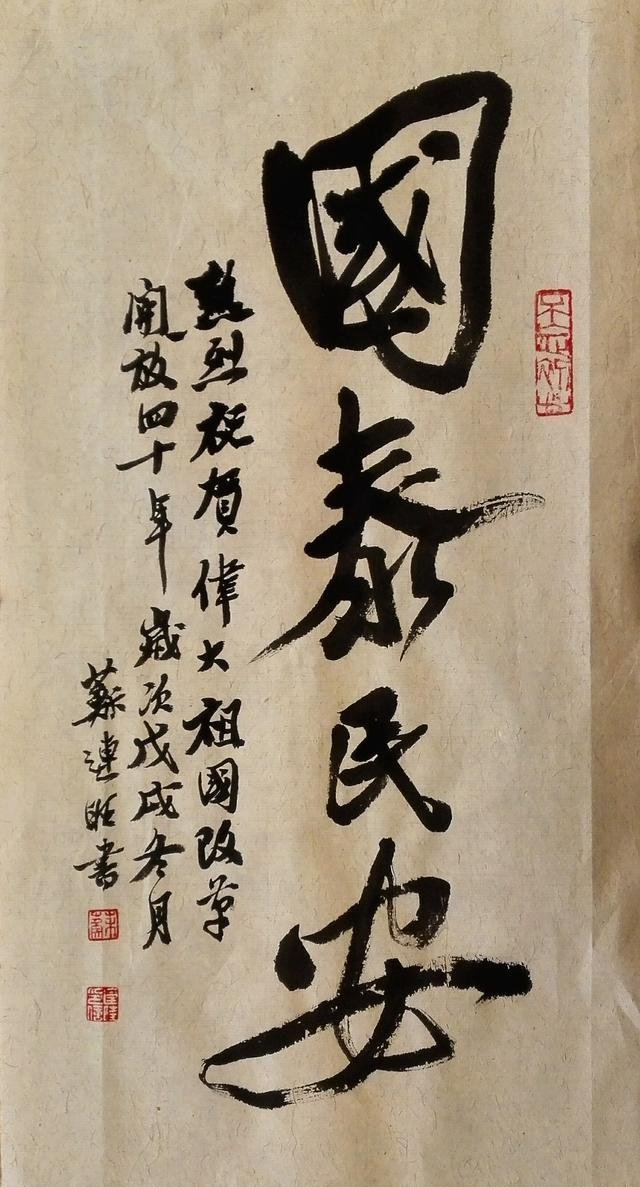 國泰民安
熱烈祝賀偉大祖國改革
開放四十年歲次戊戌冬月
蘇連旺書